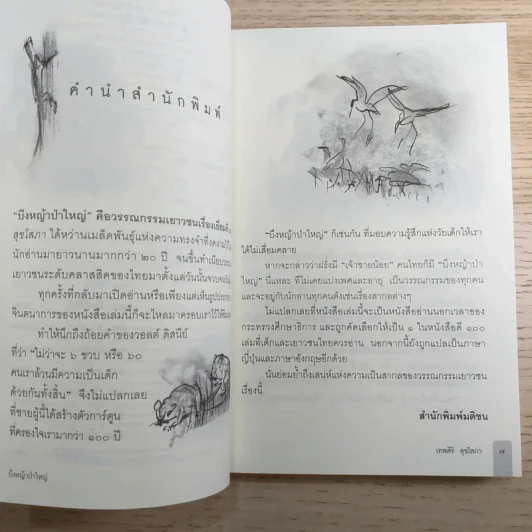 คำนำสำนักพิมพ์
"บึงหญ้าป่าใหญ่" คือวรรณกรรมเยาวชนเรื่องเยี่ยมที่
สุขโสภา ได้หว่านเมล็ดพันธุ์แห่งความทรงจำที่งดงามไว้ใน
นักอ่านมายาวนานมากกว่า ๒๐ ปี จนขึ้นทำเนียบ
เยาวชนระดับคลาสสิคของไทยมาตั้งแต่วันนั้นจวบจน
ทุกครั้งที่กลับมาเปิดอ่านหรือเพียงแต่เห็นรูป
จินตนาการของหนังสือเล่มนี้ก็จะไหลมาครอบเราไว้
ทำให้นึกถึงถ้อยคำของวอลต์ ดิสนีย์
ที่ว่า "ไม่ว่าจะ ๖ ขวบ หรือ ๖๐
คนเราล้วนมีความเป็นเด็ก
ด้วยกันทั้งสิ้น" จึงไม่แปลกเลย
ที่ชายผู้นี้ได้สร้างตัวการ์ตูน
ที่ครองใจเรามากว่า ๑๐๐ ปี
บึงหญ้าป่าใหญ่
"บึงหญ้าป่าใหญ่" ก็เช่นกัน ที่มอบความรู้สึกแห่งวัยเด็กให้เรา
ได้ไม่เสื่อมคลาย
หากจะกล่าวว่าฝรั่งมี "เจ้าชายน้อย" คนไทยก็มี "บึงหญ้าป่า
ใหญ่" นี่แหละ ที่ไม่เคยแบ่งเพศและอายุ เป็นวรรณกรรมของทุกคน
และจะอยู่กับนักอ่านทุกคนดังเช่นเรื่องสากลต่างๆ
ไม่แปลกเลยที่หนังสือเล่มนี้จะเป็นหนังสืออ่านนอกเวลาของ
กระทรวงศึกษาธิการ และถูกคัดเลือกให้เป็น ๑ ในหนังสือดี ๑๐๐
เล่มที่เด็กและเยาวชนไทยควรอ่าน นอกจากนี้ยังถูกแปลเป็นภาษา
ญี่ปุ่นและภาษาอังกฤษอีกด้วย
นั่นย่อมย้ำถึงเสน่ห์แห่งความเป็นสากลของวรรณกรรมเยาวชน
เรื่องนี้
สำนักพิมพ์มติชน
เทพศิริ สุขโสภา
๗